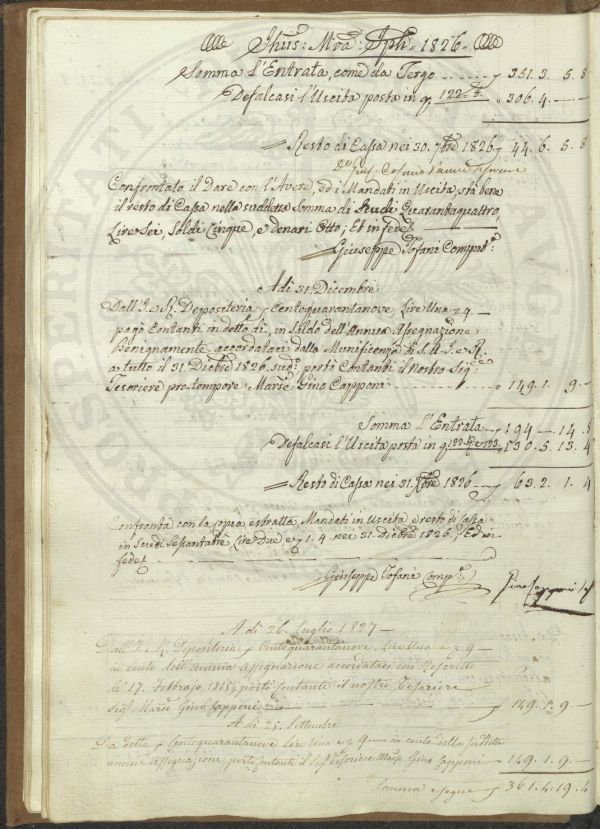 Jhus: Mra: Jph: 1826
Somma l'Entrata, come da Tergo 351. 3. 5. 8
Defalcasi l'Uscita posta in q. 122 306. 4. —
Resto di Cassa nei 30. 7bre 1826 44. 6. 5. 8
Confrontato il Dare con l'Avere, ed i Mandati in Uscita sta bene
il resto di Cassa nella suddetta Somma di Scudi Quarantaquattro,
Lire Sei, Soldi Cinque, e denari Otto; Et in fede
Giuseppe Tofani Comput.e
A di 31. Dicembre
Dall'I. e R. Depositeria Centoquarantanove Lire Una e 9 —
pagò Contanti in detto di, in Saldo dell'Annua Assegnazione
Benignamente accordataci dalla Munificenza di S. A. I. e R.
a tutto il 31. Dicbre 1826. sudo. portò Contanti il Nostro Sig.e
Tesoriere pro tempore Marse Gino Capponi 149. 1. 9 —
Somma l'Entrata 194 — 14. 8
Defalcasi l'Uscita posta in q. 122 e 123 130. 5. 13. 4
Resto di Cassa nei 31. Xbre 1826 63. 2. 1. 4
Confronta con la copia estratta Mandati in Uscita e resto di Cassa
in Scudi Sessantatre Lire Due e 1. 4. nei 31. Dicbre 1826. Ed in
fede
Giuseppe Tofani Comp.e
Gino Capponi
A di 26. Luglio 1827 —
Dall'I. R. Depositeria Centoquarantanove, Lire Una e 9 —
in conto dell'annua Assegnazione accordataci con Rescritto
di 17. Febbrajo portò Contanti il nostro Tesoriere
Sig.e Marse Gino Capponi 149. 1. 9 —
A di 25. Settembre
Da detta Centoquarantanove Lire Una e 9 — in conto della suddetta
annua Assegnazione portò Contanti il Sig.e Tesoriere Marse Gino Capponi 149. 1. 9. —
Somma e segue 361. 4. 19. 4